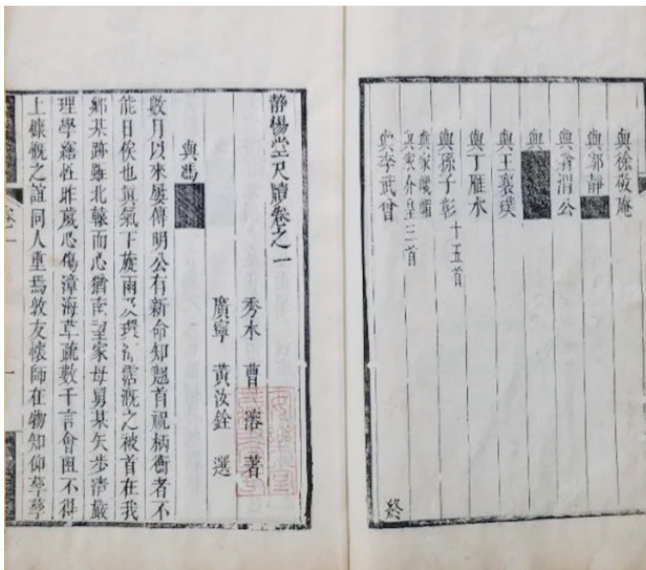 與徐敬庵
與郭靜
與翁渭公
與
與王襄璞
與丁雁水
與孫子彰 十五首
與家
與家 三首
與李武曾
終
静惕堂尺牘卷之一
秀水 曹溶 著
廣寧 黃汝銓 選
與馮
數月以來屢傳明公有新命知翹首 柄衡者不
能日俟也眞氣下旋雨及環 霑漑之被首在我
鄉某跡雖北轅而心猶南望家母舅某矢步清嚴
理學繕性昨歲心傷漳海草疏數千言會阻不得
上慷慨之誼同人重焉敦友懷師在物知仰孳孳